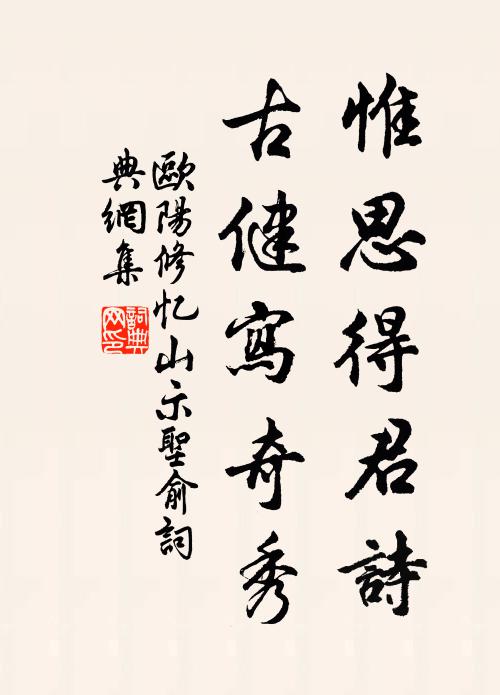 惟思得君詩
古健寫奇秀
歐陽修忆山示聖俞詞
典網集
詞典
网印